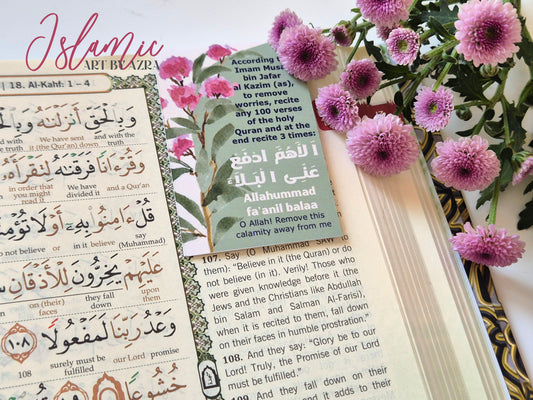 Islamic
ART BY AZRA
18. Al-Kahf: 1 - 4
وَبِالْحَقِّ أَنزَلْنَاهُ وَبِالْحَقِّ
We have sent and with the
it (the Qur'an) down truth
وَقُرْءَانًا فَرَقْنَاهُ لِتَقْرَأَهُ
in order that We have and a Qur'an
you might divided it
قُلْ ءَامِنُوا۟ بِهِۦٓ أَوْ لَا تُؤْمِنُوٓا۟
not believe or in it believe say
(Muhammad)
عَلَيْهِمْ يَخِرُّونَ لِلْأَذْقَانِ
on (their) they fall upon
faces down them
وَعْدُ رَبِّنَا لَمَفْعُولًا ١٠٨
108 surely must be our Lord promise
fulfilled
خُشُوعًا
According to
Imam Mus
bin Jafar
al Kazim (as),
to remove
worries, recite
any 100 verses
of the holy
Quran and at the
end recite 3 times:
اَلْلّٰهُمَّ ادْفَعْ
عَنِّى الْبَلَاءَ
Allahummad
fa'anil balaa
O Allah! Remove this
calamity away from me
107. Say (O Muhammad SAW to
them): "Believe in it (the Quran) or do
not believe (in it). Verily! Those who
were given knowledge before it (the
Jews and the Christians like Abdullah
bin Salam and Salman Al-Farisi),
when it is recited to them, fall down
on their faces in humble prostration."
108. And they say: "Glory be to
our Lord! Truly, the Promise of our Lord
must be fulfilled."
109. And they fall down on their
and it adds to their